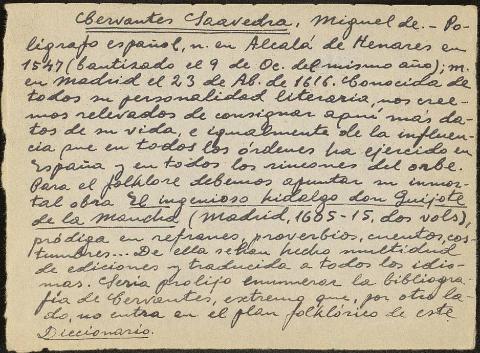 Cervantes Saavedra, Miguel de. - Po-
lígrafo español, n. en Alcalá de Henares en
1547 (bautizado el 9 de Oc. del mismo año); m.
en Madrid el 23 de Ab. de 1616. Conocida de
todos su personalidad literaria, nos cree-
mos relevados de consignar aquí más da-
tos de su vida, e igualmente de la influen-
cia que en todos los órdenes ha ejercido en
España y en todos los rincones del orbe.
Para el folklore debemos apuntar su inmor-
tal obra El ingenioso hidalgo don Quijote
de la Mancha (Madrid, 1605-15, dos vols),
pródiga en refranes, proverbios, cuentos, cos-
tumbres... De ella se han hecho multitud
de ediciones y traducida a todos los idio-
mas. Sería prolijo enumerar la bibliogra-
fía de Cervantes, extremo que, por otro la-
do, no entra en el plan folklórico de este
Diccionario.